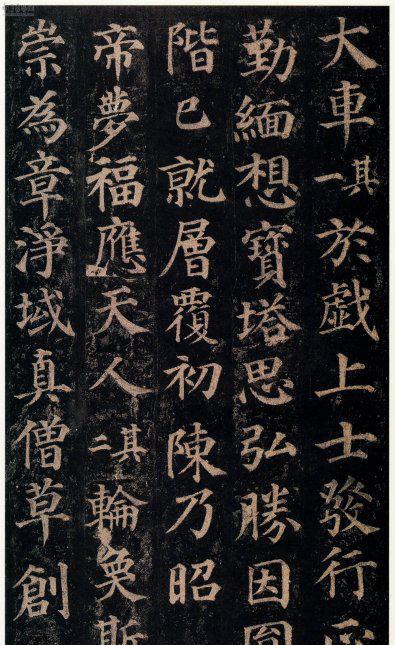 大車其一於戯上士發行
勤緬想寶塔思弘勝因圓
階已就層覆初陳乃昭
帝夢福應天人其二輪奐斯
崇為章淨域真僧草創